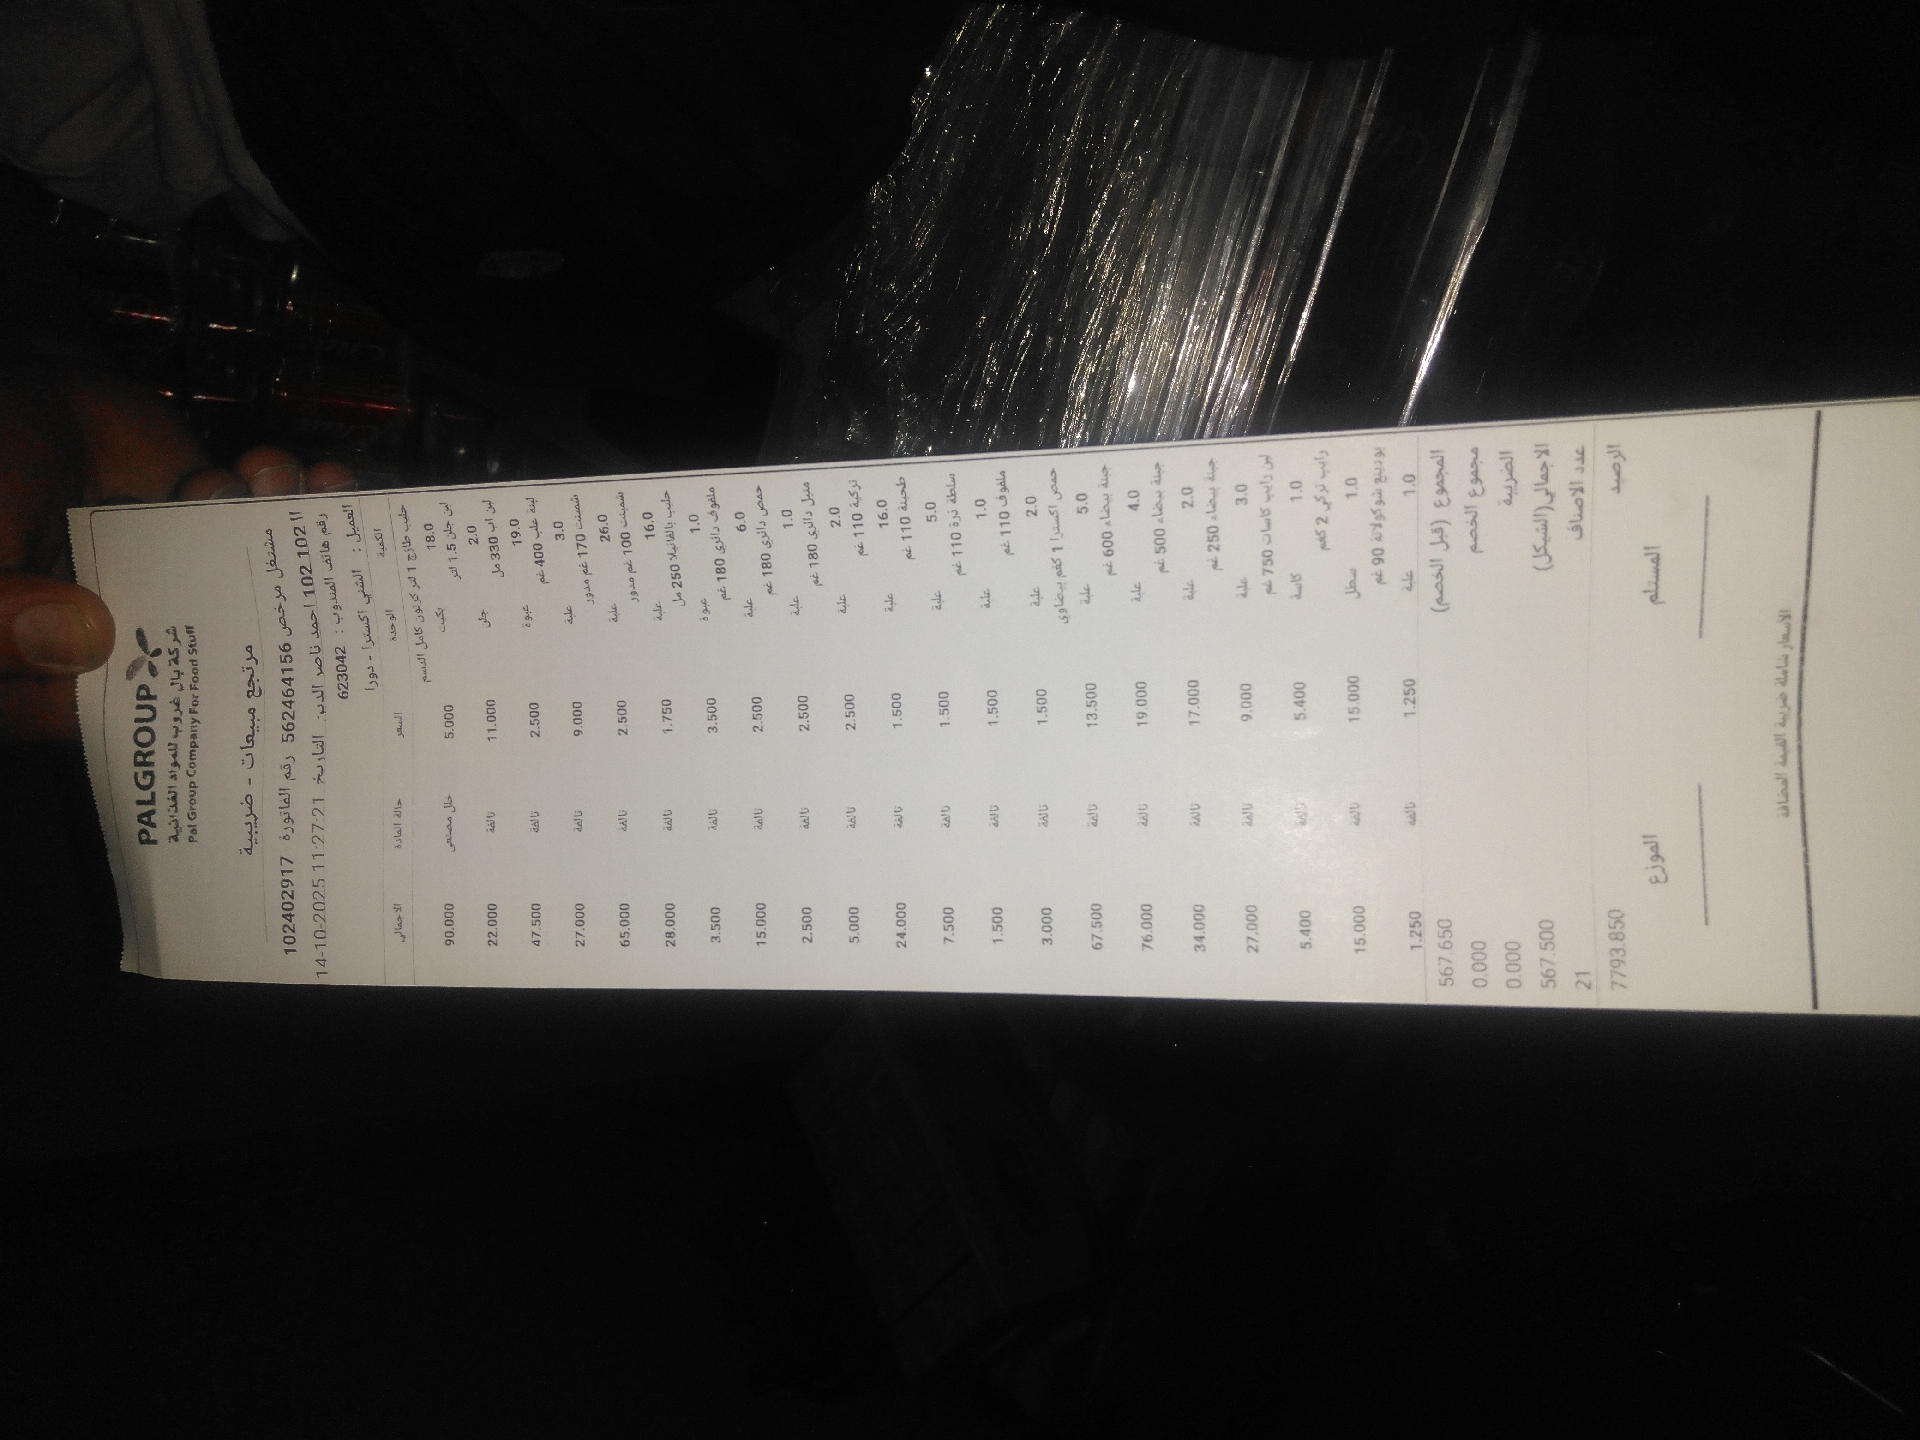 PALGROUP
شركة بال غروب للمواد الغذائية
Pal Group Company For Food Stuff
مرتجع مبيعات - ضريبية
مشتغل مرخص 562464156 رقم الفاتورة 102402917
102 102 احمد ناصر الدين التاريخ 14-10-2025 11:27:21
رقم هاتف المندوب : 623042
العميل : التقى اكسترا - دورا
الكمية الوحدة السعر حالة المادة الاجمالي
حليب طازج 1 لتر كرتون كامل الدسم
18.0 بكيت 5.000 90.000
لبن جلن 1.5 لتر
2.0 جلن 11.000 تالفة 22.000
لبن اب 330 مل
19.0 عبوة 2.500 تالفة 47.500
لبنة علب 400 غم
3.0 علبة 9.000 تالفة 27.000
شمينت 170 غم مدور
26.0 علبة 2.500 تالفة 65.000
شمينت 100 غم مدور
16.0 علبة 1.750 تالفة 28.000
حليب بالفانيلا 250 مل
1.0 عبوة 3.500 تالفة 3.500
ملفوف دائري 180 غم
6.0 علبة 2.500 تالفة 15.000
حمص دائري 180 غم
1.0 علبة 2.500 تالفة 2.500
متبل دائري 180 غم
2.0 علبة 2.500 تالفة 5.000
تركية 110 غم
16.0 علبة 1.500 تالفة 24.000
طحينة 110 غم
5.0 علبة 1.500 تالفة 7.500
سلطة ذرة 110 غم
1.0 علبة 1.500 تالفة 1.500
ملفوف 110 غم
2.0 علبة 1.500 تالفة 3.000
حمص اكسترا 1 كغم بيضاوي
5.0 علبة 13.500 تالفة 67.500
جبنة بيضاء 600 غم
4.0 علبة 19.000 تالفة 76.000
جبنة بيضاء 500 غم
2.0 علبة 17.000 تالفة 34.000
جبنة بيضاء 250 غم
3.0 علبة 9.000 تالفة 27.000
لبن رايب كاسات 750 غم
1.0 كاسة 5.400 تالفة 5.400
رايب تركي 2 كغم
1.0 سطل 15.000 تالفة 15.000
بودينغ شوكولاتة 90 غم
1.0 علبة 1.250 تالفة 1.250
المجموع (قبل الخصم) 567.650
مجموع الخصم 0.000
الضريبة 0.000
الاجمالي(الشيكل) 567.500
عدد الاصناف 21
الرصيد 7793.850
المستلم الموزع
الاسعار شاملة ضريبة القيمة المضافة